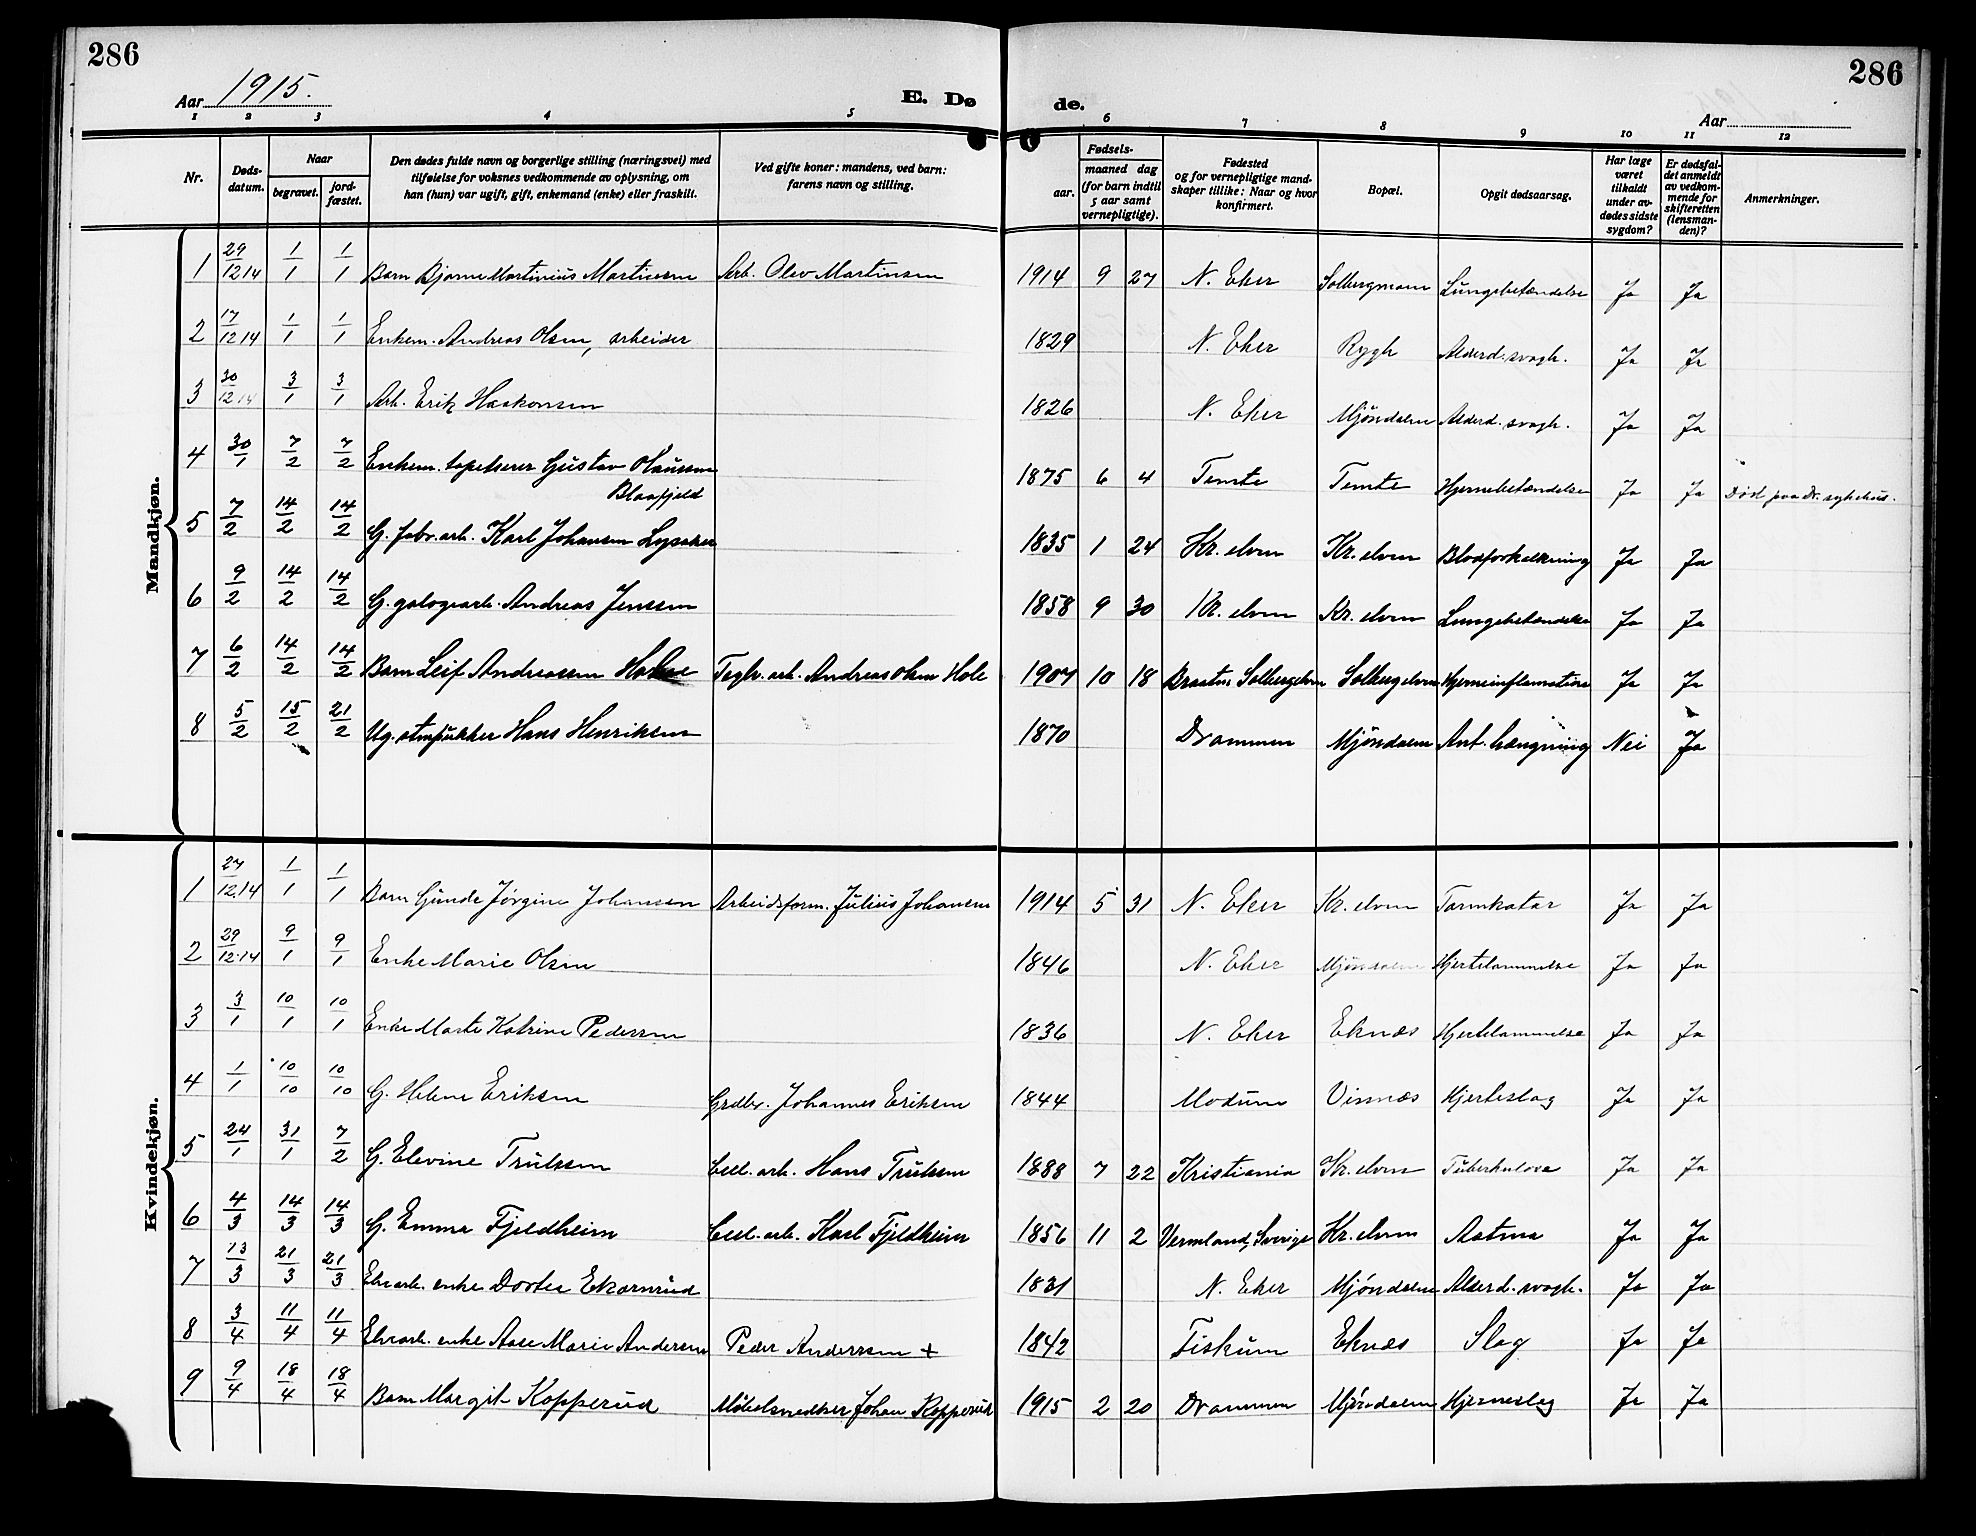 286
286
Aar 1915.
E. Dø
de.
Aar
1 2 3 4 5 6 7 8 9 10 11 12
Nr.
Døds-
datum.
Naar
begravet.
jord-
fæstet.
Den dødes fulde navn og borgerlige stilling (næringsvei) med
tilføielse for voksnes vedkommende av oplysning, om
han (hun) var ugift, gift, enkemand (enke) eller fraskilt.
Ved gifte koner: mandens, ved barn:
farens navn og stilling.
Fødsels-
aar.
maaned dag
(for barn indtil
5 aar samt
vernepligtige).
Fødested
og for vernepligtige mand-
skaper tillike: Naar og hvor
konfirmert.
Bopæl.
Opgit dødsaarsag.
Har læge
været
tilkaldt
under av-
dødes sidste
sygdom?
Er dødsfal-
det anmeldt
av vedkom-
mende for
skifteretten
(lensman-
den)?
Anmerkninger.
Mandkjøn.
1 29/12.14 1/1 1/1 Barn Bjarne Martinius Martinsen Arb. Olav Martinsen 1914 9 27 N. Eker Solbergmoen Lungebetændelse Ja Ja
2 17/12.14 1/1 1/1 Enkem. Andreas Olsen, arbeider 1829 N. Eker Rygh Alderd.svagh. Ja Ja
3 30/12.14 3/1 3/1 Arb. Erik Haakonsen 1826 N. Eker Mjøndalen Alderd.svagh. Ja Ja
4 30/1 7/2 7/2 Enkem. tapetserer Gustav Olaussen 1875 6 4 Temte Temte Hjernebetændelse Ja Ja Død paa Dr. sykehus.
Blaafjeld
5 7/2 14/2 14/2 G. fabr.arb. Karl Johansen Lysaker 1835 1 24 Kr. elven Kr. elven Blodforkalkning Ja Ja
6 9/2 14/2 14/2 G. galogearb. Andreas Jenssen 1858 9 30 Kr. elven Kr. elven Lungebetændelse Ja Ja
7 6/2 14/2 14/2 Barn Leif Andreassen Teglv. arb. Andreas Olsen Hole 1907 10 18 Solbergelven Solbergelven Hjerneinflamation Ja Ja
8 5/2 15/2 21/2 Ug. stenpukker Hans Henriksen 1870 Drammen Mjøndalen Ant. hængning Nei Ja
Kvindekjøn.
1 27/12.14 1/1 1/1 Barn Gunda Jørgine Johansen Arbeidsform. Julius Johansen 1914 5 31 N. Eker Kr. elven Tarmkatar Ja Ja
2 29/12.14 9/1 9/1 Enke Marie Olsen 1846 N. Eker Mjøndalen Hjertelammelse Ja Ja
3 3/1 10/1 10/1 Enke Marte Katrine Pedersen 1836 N. Eker Eknæs Hjertelammelse Ja Ja
4 1/1 10/10 10/10 G. Helene Eriksen Grdbr. Johannes Eriksen 1844 Modum Vinnæs Hjerteslag Ja Ja
5 24/1 31/1 7/2 G. Elevine Trulssen Cell. arb. Hans Trulssen 1888 7 22 Kristiania Kr. elven Tuberkulose Ja Ja
6 4/3 14/3 14/3 G. Emma Fjeldheim Cell. arb. Karl Fjeldheim 1856 11 2 Vermland, Sverige Kr. elven Astma Ja Ja
7 13/3 21/3 21/3 enke Dortea Ekornrud 1831 N. Eker Mjøndalen Alderd. svagh. Ja Ja
8 3/4 11/4 11/4 enke Aase Marie Andersen Peder Anderssen + 1842 Fiskum Eknæs Slag Ja Ja
9 9/4 18/4 18/4 Barn Margit Kopperud Møbelsnedker Johan Kopperud 1915 2 20 Drammen Mjøndalen Hjerneslag Ja Ja